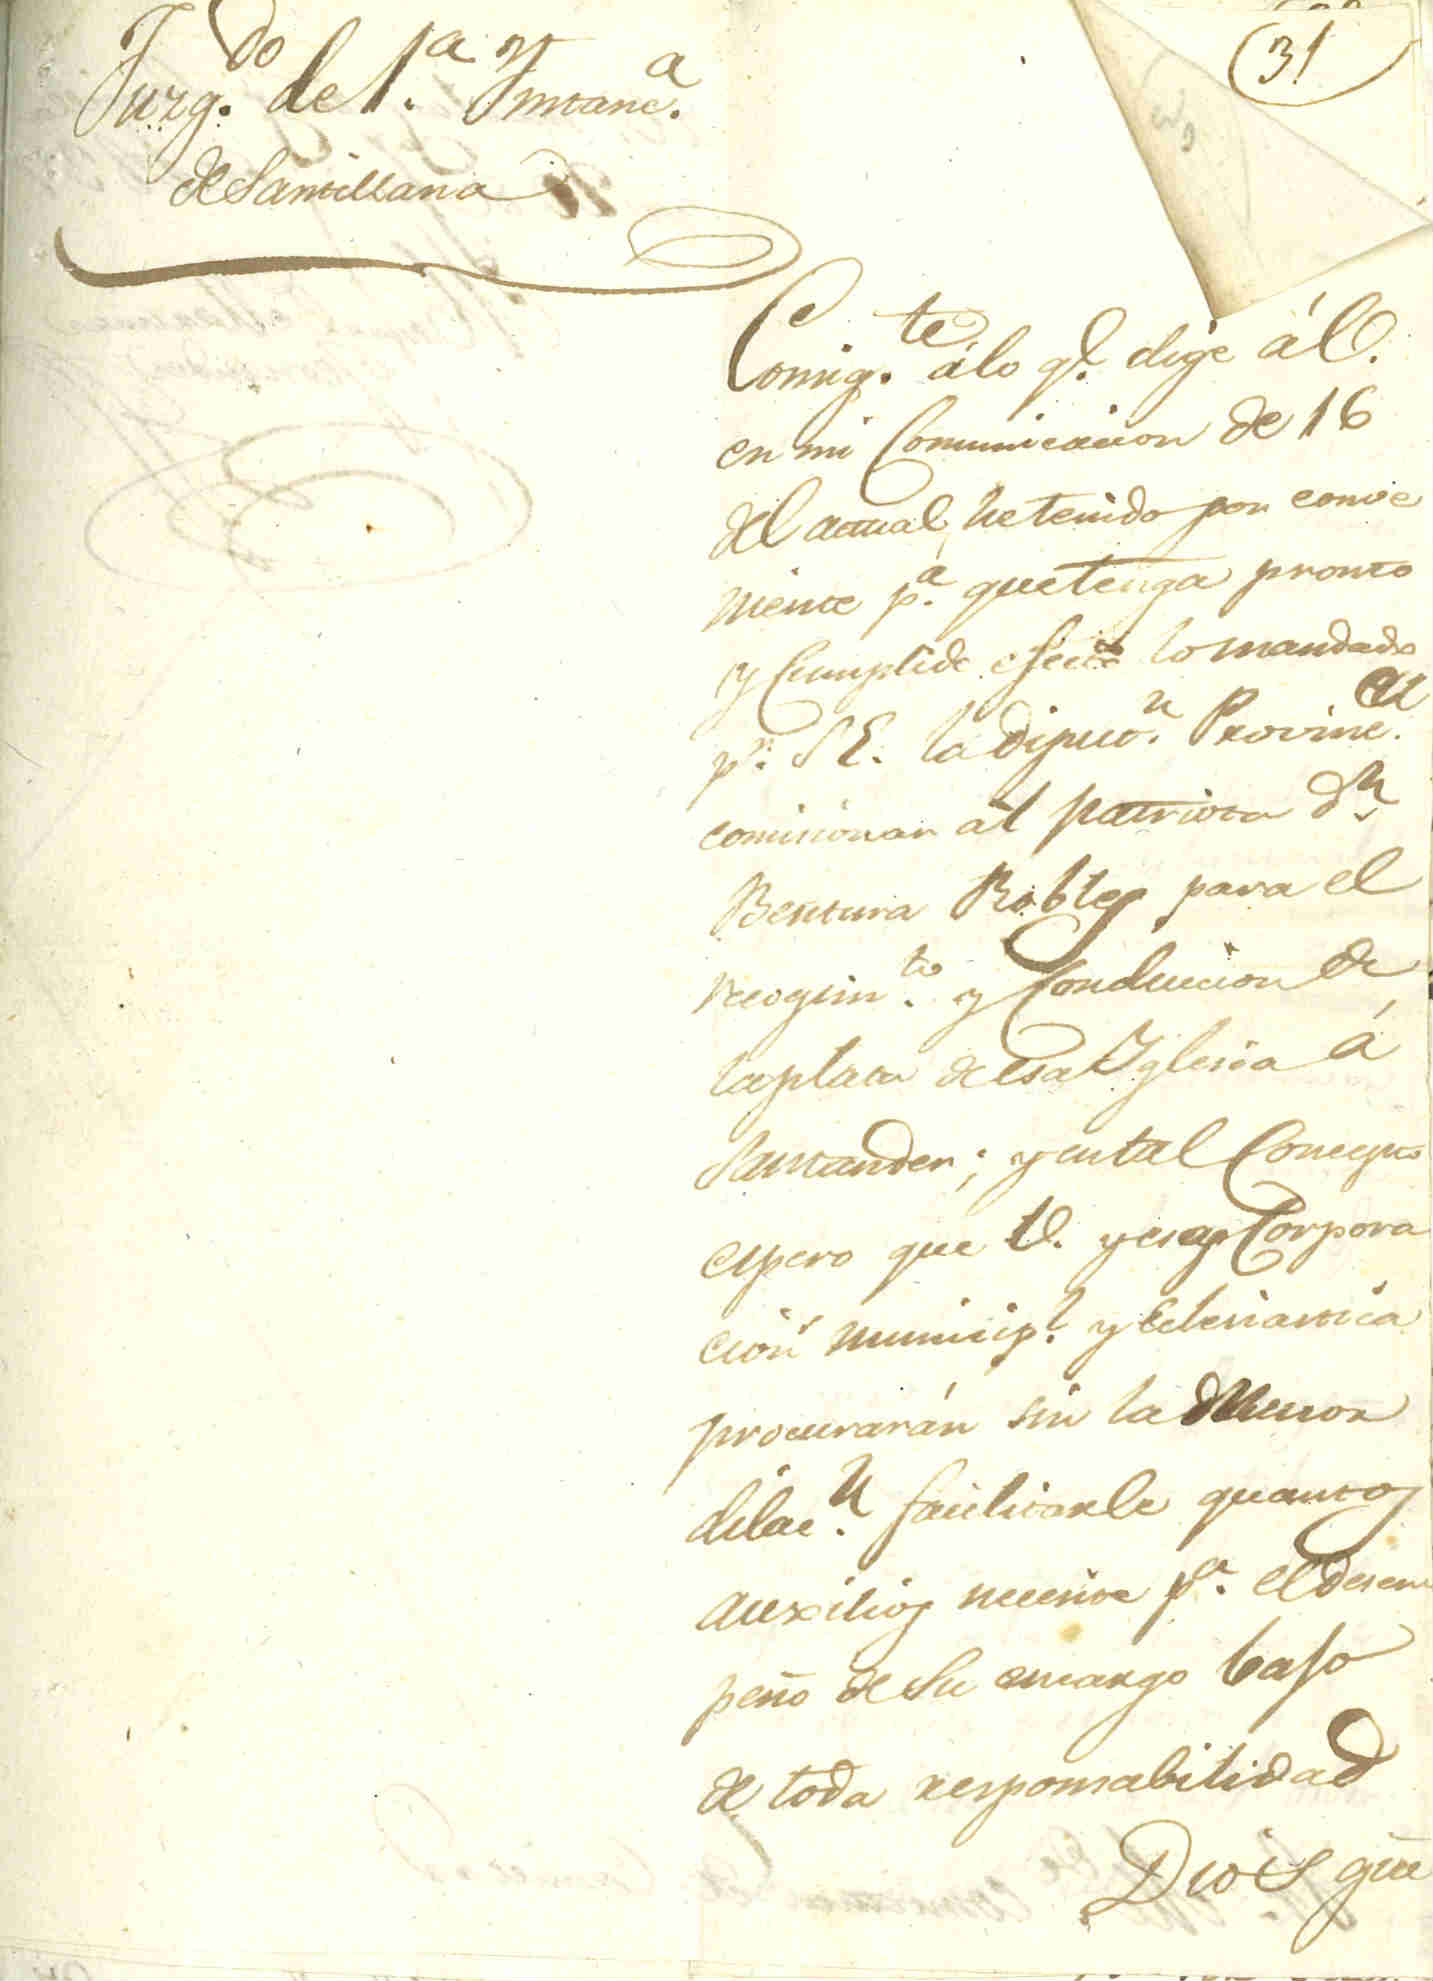 31
Juzg.do de 1.a Ynstanc.a
de Santillana
Consig.te á lo q.e dige á V.
en mi Comunicacion de 16
del actual, he tenido por conve
niente p.a que tenga pronto
y Cumplido efecto lo mandado
p.r S E. la Diputo.n Provinc.al
comisionar al patriota D.n
Bentura Robles para el
recogim.to y Conduccion de
la plata de esa Yglesia á
Santander; y en tal Concepto
espero que V. y esas Corpora
cion municip.l y Eclesiastica
procurarán sin la menor
dilac.n facilitarle quantos
auxilios necesite p.a el desem
peño de su encargo bajo
de toda responsabilidad
Dios gue